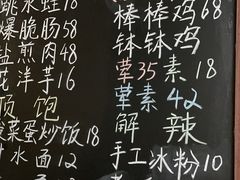 跳水蛙18
爆脆肠58
盐煎肉48
花洋芋16
顶饱
菜蛋炒饭18
水面12
棒棒鸡68
钵钵鸡
荤35素18
荤素42
解辣
手工冰粉10